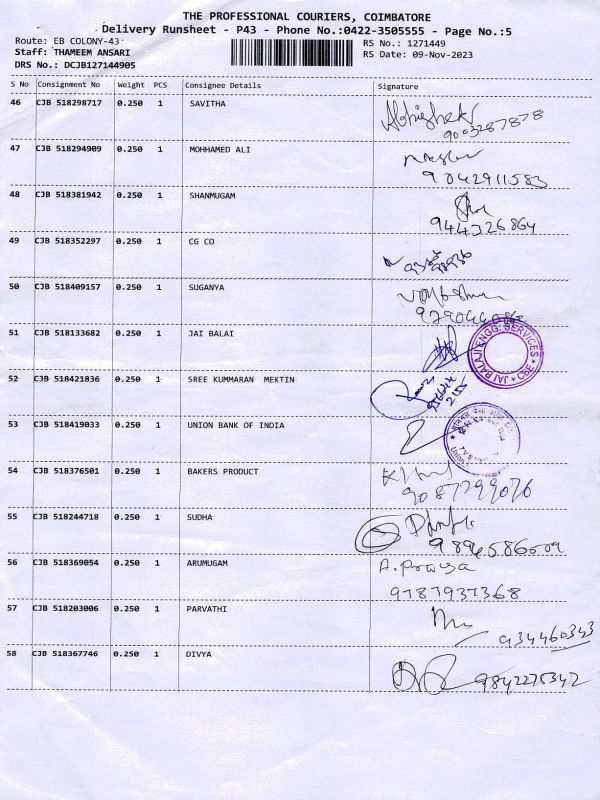 THE PROFESSIONAL COURIERS, COIMBATORE
Delivery Runsheet - P43 - Phone No.:0422-3505555 - Page No.:5
Route: EB COLONY-43 RS No.: 1271449
Staff: THAMEEM ANSARI RS Date: 09-Nov-2023
DRS No.: DCJB127144905
S No Consignment No Weight PCS Consignee Details Signature
46 CJB 518298717 0.250 1 SAVITHA Abhishek
9003287878
47 CJB 518294909 0.250 1 MOHHAMED ALI
9042911583
48 CJB 518381942 0.250 1 SHANMUGAM
944326864
49 CJB 518352297 0.250 1 CG CO
50 CJB 518409157 0.250 1 SUGANYA
51 CJB 518133682 0.250 1 JAI BALAI
JAI BALAJI ENGG. SERVICES
CBE
52 CJB 518421836 0.250 1 SREE KUMMARAN MEKTIN
53 CJB 518419033 0.250 1 UNION BANK OF INDIA
54 CJB 518376501 0.250 1 BAKERS PRODUCT
9087799076
55 CJB 518244718 0.250 1 SUDHA
56 CJB 518369054 0.250 1 ARUMUGAM A.
9787937368
57 CJB 518203006 0.250 1 PARVATHI
934460343
58 CJB 518367746 0.250 1 DIVYA
9842275342